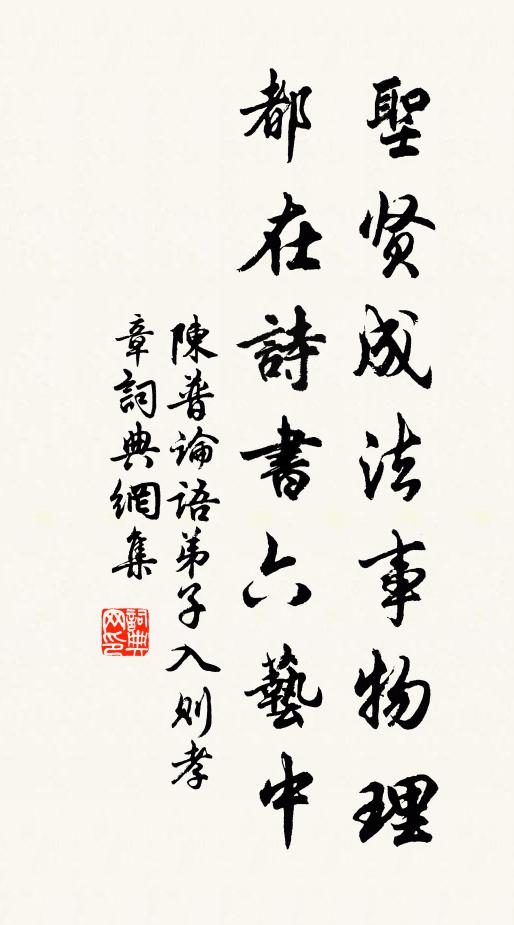 聖贤成法事物理
都在詩書六藝中
陳普論語弟子入则孝
章詞典網集
詞典網印